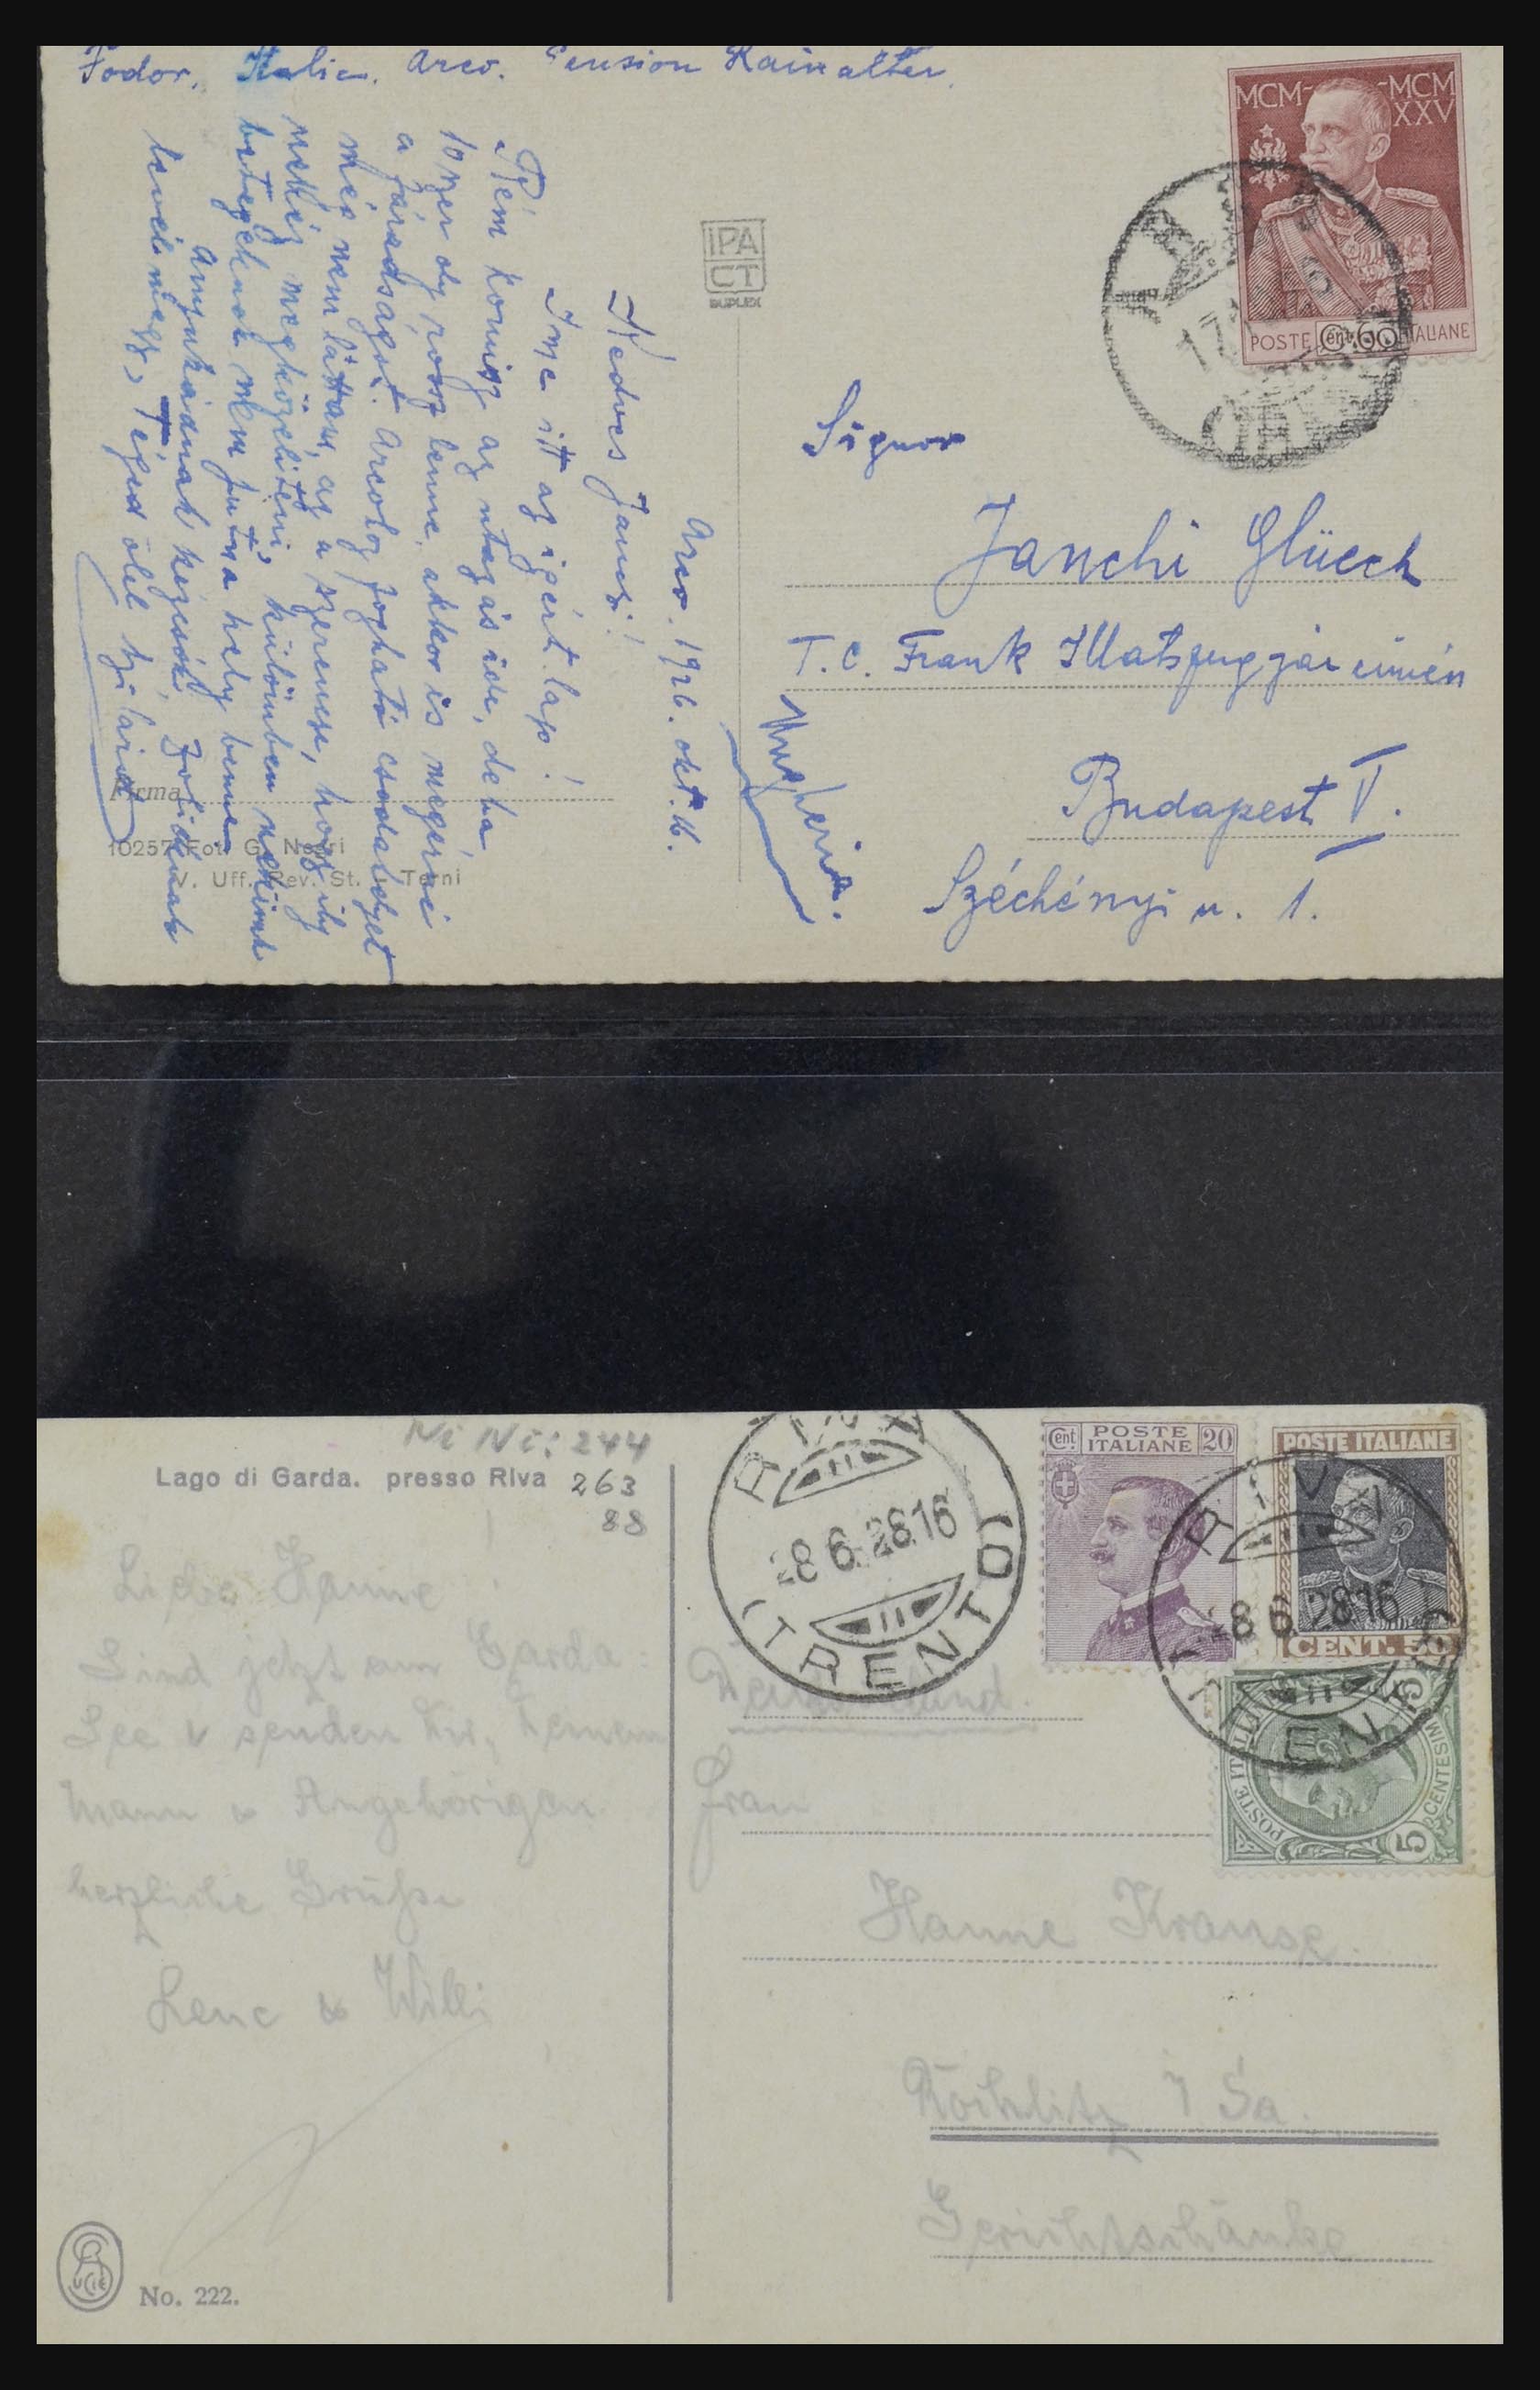 Fodor. Italia. Arco. Pension Rainalter.
MCM- -MCM
XXV
POSTE Cent. 60 ITALIANE
IPA
CT
DUPLEX
Arco. 1926. okt. 16.
Kedves Jancsi!
Ime itt az igért lap!
Rém komisz az utazás ide, de ha
10szer oly rossz lenne, akkor is megérné
a fáradságot. Arcoboz fogható csodaszépet
még nem láttam, az a szerencse, hogy
nehéz megközelíteni, különben nekünk
betegeknek nem jutna hely benne
Anyukádnak kézcsók,
Téged ölel
Firma
10257 Fot. G. Negri
V. Uff. Rev. St. Terni
Signor
Janchi Glück
T. c. Frank
Budapest V.
Széchényi u. 1.
Ni Ni: 244
Lago di Garda. presso Riva 263
88
Liebe Hanne!
Sind jetzt am Garda-
See u senden Dir, Deinem
Mann u Angehörigen
herzliche Grüße
Lene u Willi
No. 222.
RIVA
28 6. 28 16
(TRENTO)
Cent. POSTE ITALIANE 20
POSTE ITALIANE
CENT. 50
RIVA
28 6 28 16
TRENTO
POSTE ITALIANE
5 CENTESIMI 5
Deutschland.
Frau
Hanne Krause.
Rochlitz i Sa.
Gerichtsschänke